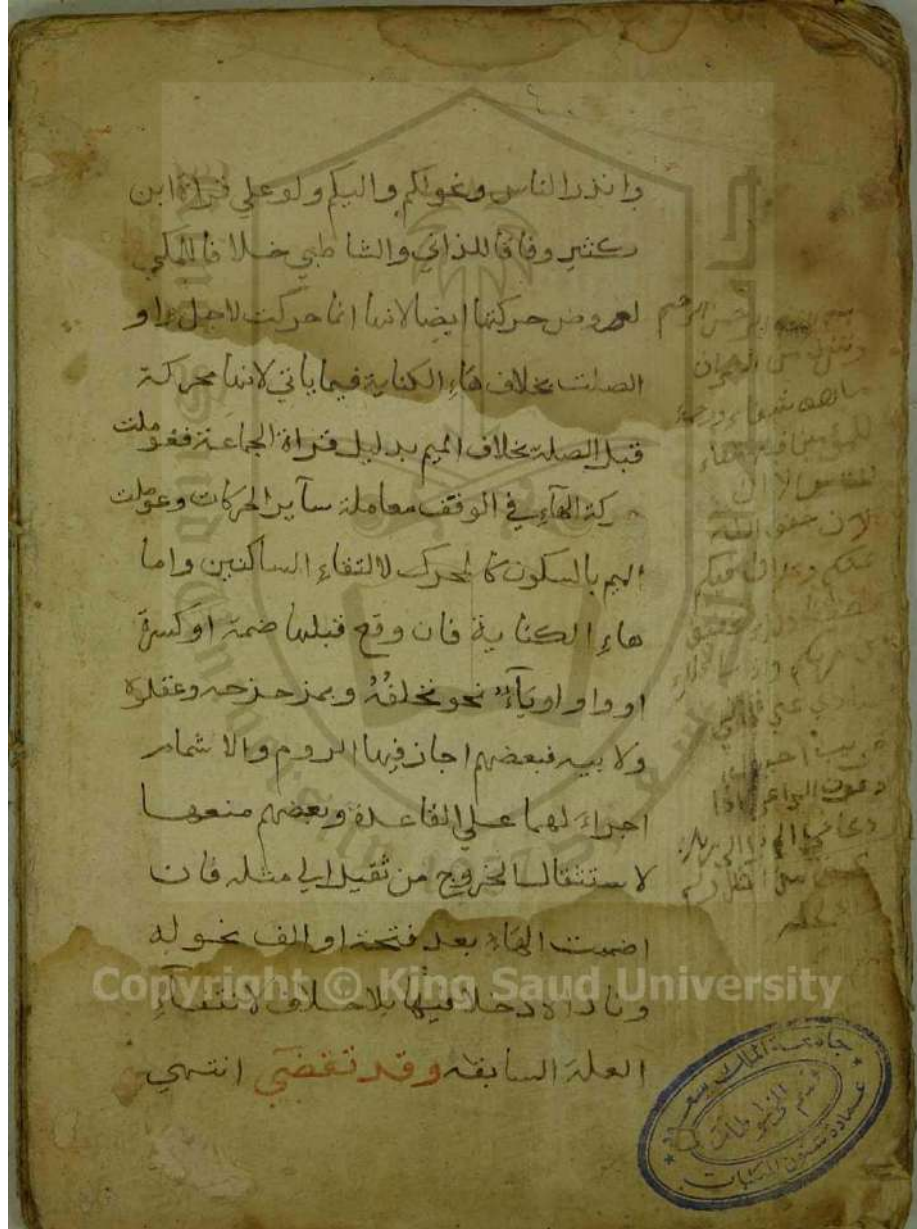 وانذر الناس ونحو لكم واليكم ولو علي قراة ابن
كثير وفاقا للداني والشاطبي خلافا للمكي
لعروض حركتها ايضا لانها انما حركت لاجل واو
الصلت بخلاف هاء الكناية فيما ياتي لانها محركة
قبل الصلة بخلاف الميم بدليل قراة الجماعة فعوملت
حركة الهآء في الوقف معاملة سآير الحركات وعوملت
الميم بالسكون كالمحرك لالتقاء الساكنين واما
هاء الكناية فان وقع قبلها ضمة او كسرة
او واو او يآء نحو نخلفه وبمزحزحه وعقلوه
ولا بيه فبعضهم اجاز فيها الروم والاشمام
اجراء لهما علي القاعدة وبعضهم منعها
لاستثقال الخروج من ثقيل الي مثله فان
اضمت الهاء بعد فتحة او الف نحو له
وناداه دخلا فيها بلا خلاف لانتفآء
العلة السابقة وقد تقضي انتهي
بسم الله الرحمن الرحيم
وننزل من القران
ما هو شفاء ورحمة
للناس
عنكم
عبادي عني فاني
قريب اجيب
دعوة الداع اذا
دعاني
Copyright © King Saud University
جامعة الملك سعود
عمادة شئون المكتبات
قسم المخطوطات
1957